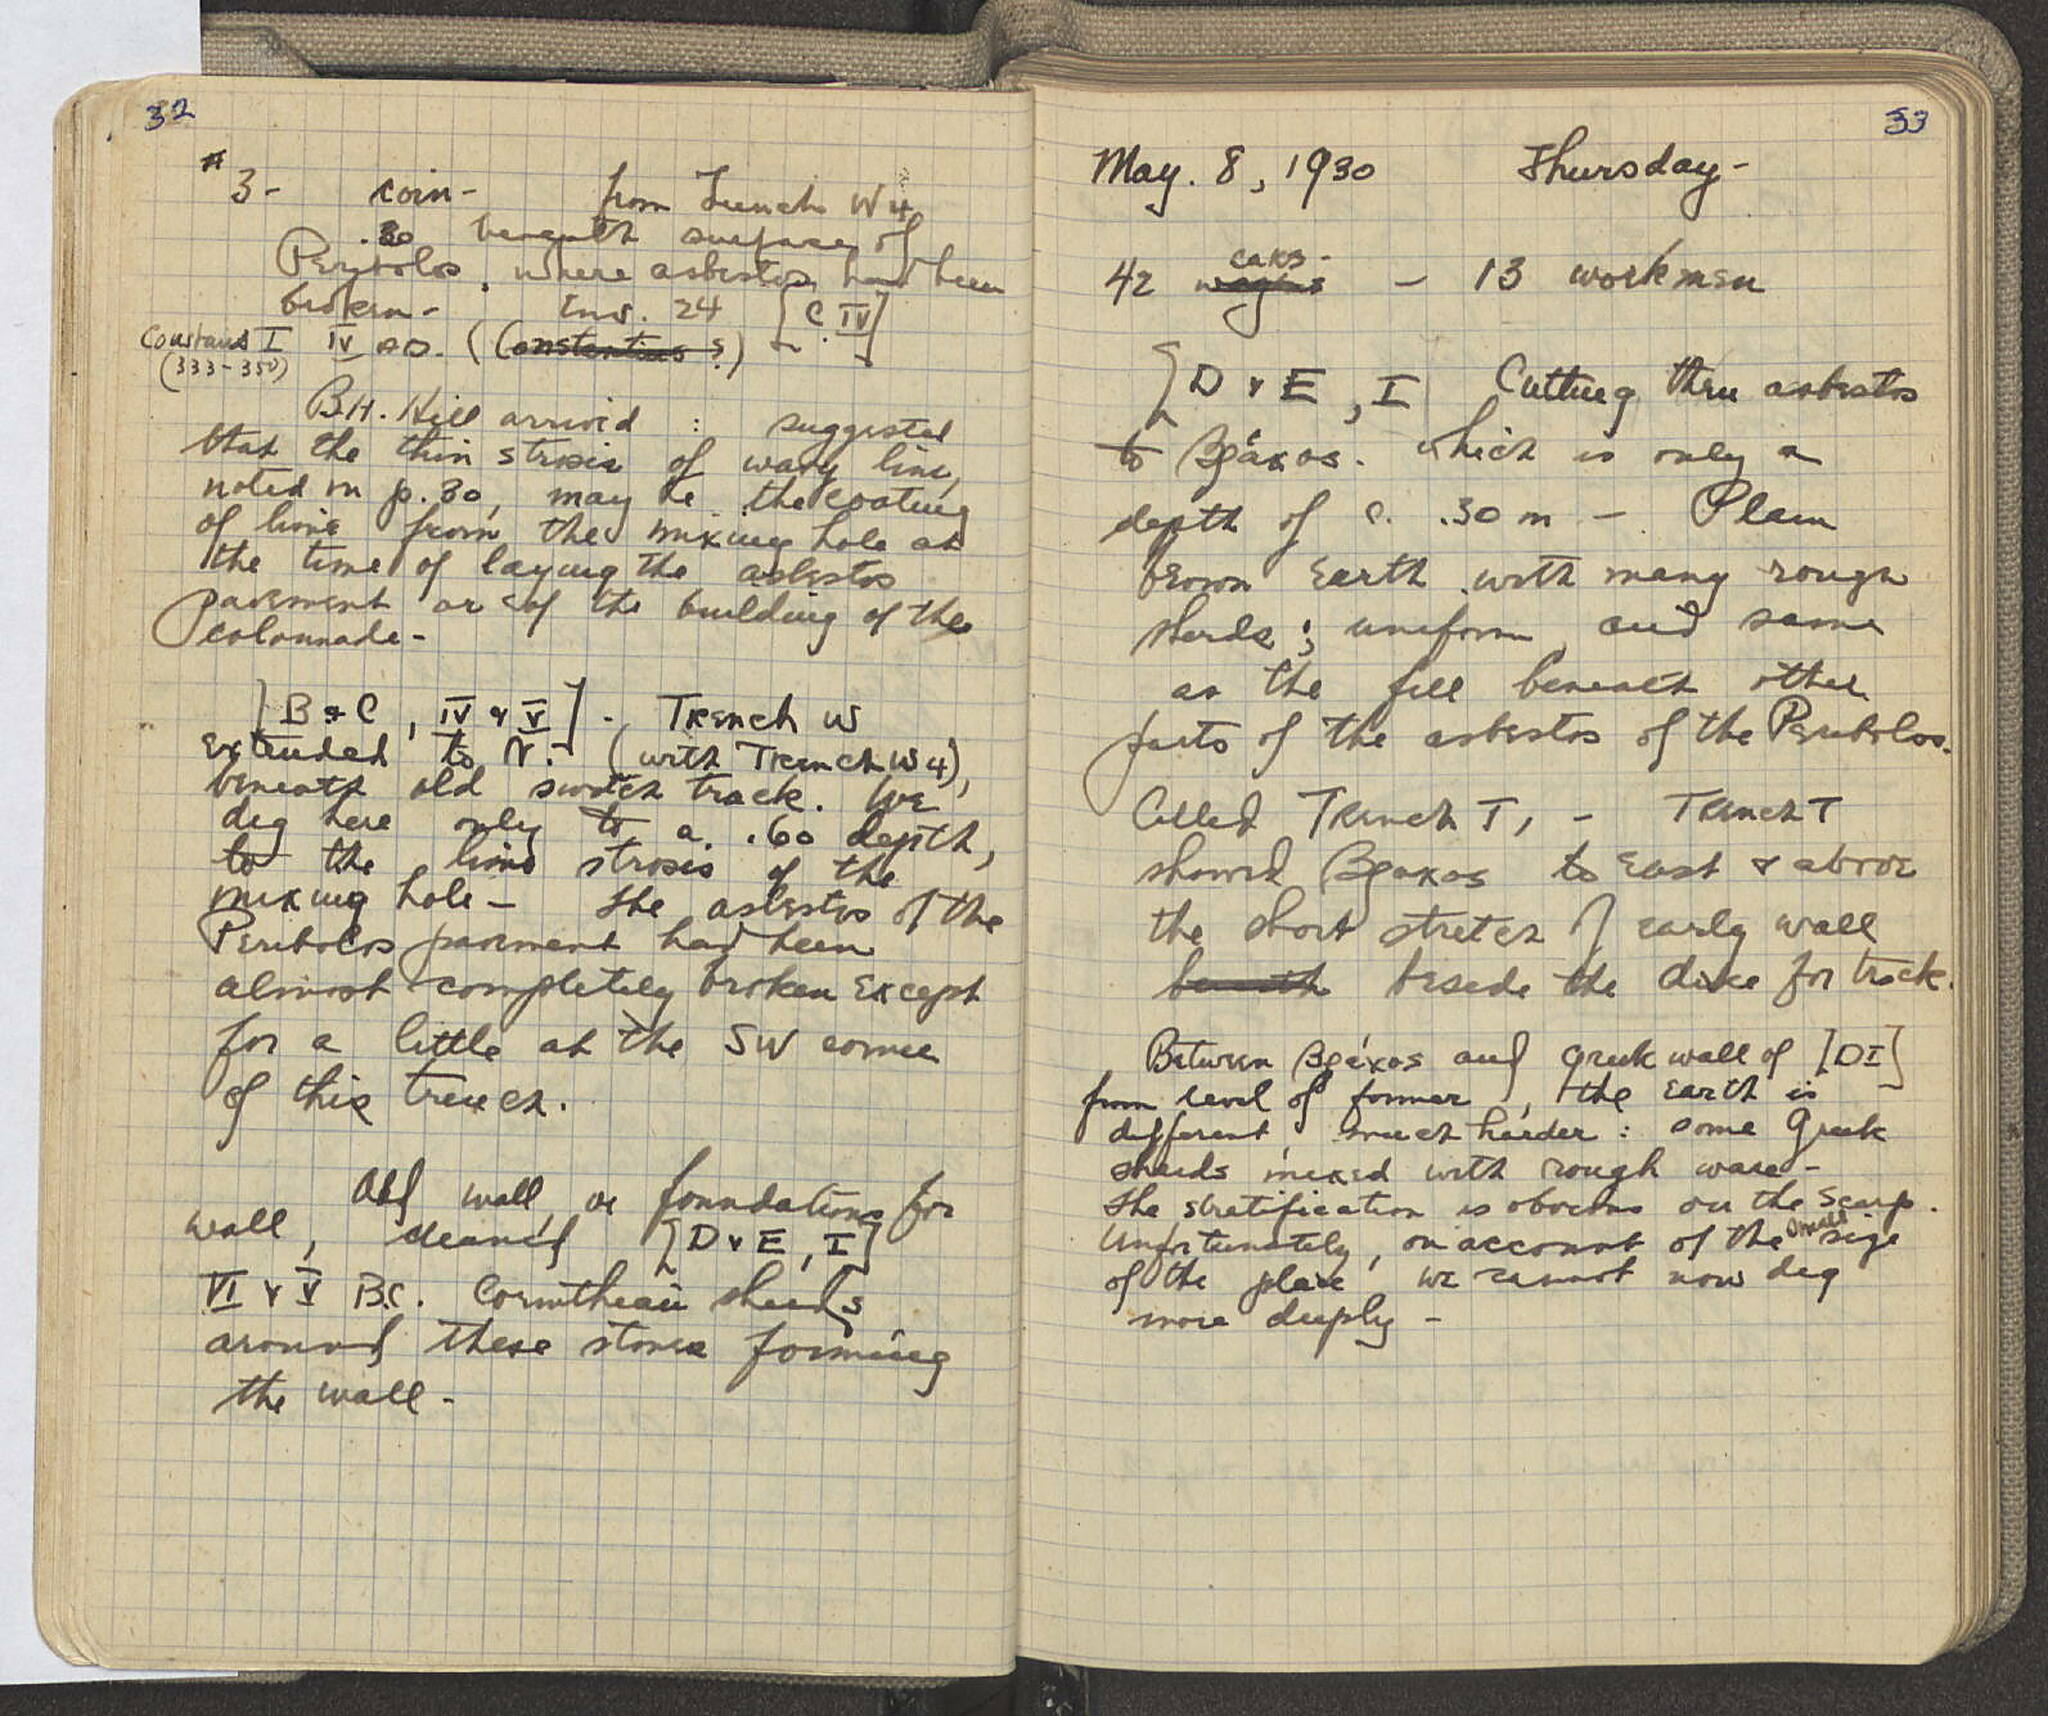 32
#3- coin- from Trench W4
.30 beneath surface of
Peribolos, where asbestos had been
broken- Inv. 24 [C IV]
Constans I IV AD. (Constantius ?)
(333-350)
B.H. Hill arrived : suggested
that the thin strosis of wavy line,
noted on p.30, may be the coating
of lime from the mixing hole at
the time of laying the asbestos
pavement or of the building of the
colonnade-
[B & C, IV & V] - Trench W
extended to N. (with Trench W4),
beneath old switch track. We
dig here only to a .60 depth,
to the lime strosis of the
mixing hole - The asbestos of the
Peribolos pavement had been
almost completely broken except
for a little at the SW corner
of this trench.
Old wall, or foundations for
wall, cleaned [D & E, I]
VI & V B.C. Corinthian sherds
around these stones forming
the wall-
33
May. 8, 1930 Thursday-
cars-
42 wagons - 13 workmen
[D & E, I] Cutting thru asbestos
to Βράχος. which is only a
depth of c. .30 m - Plain
brown earth with many rough
sherds; uniform and same
as the fill beneath other
parts of the asbestos of the Peribolos.
Called Trench T, - Trench T
showed Βραχος to East & above
the short stretch of early wall
beneath beside the dike for track.
Between Βράχος and Greek wall of [DI]
from level of former, the earth is
different, much harder: some Greek
sherds mixed with rough ware-
The stratification is obvious on the scarp.
Unfortunately, on account of the small size
of the place we cannot now dig
more deeply -